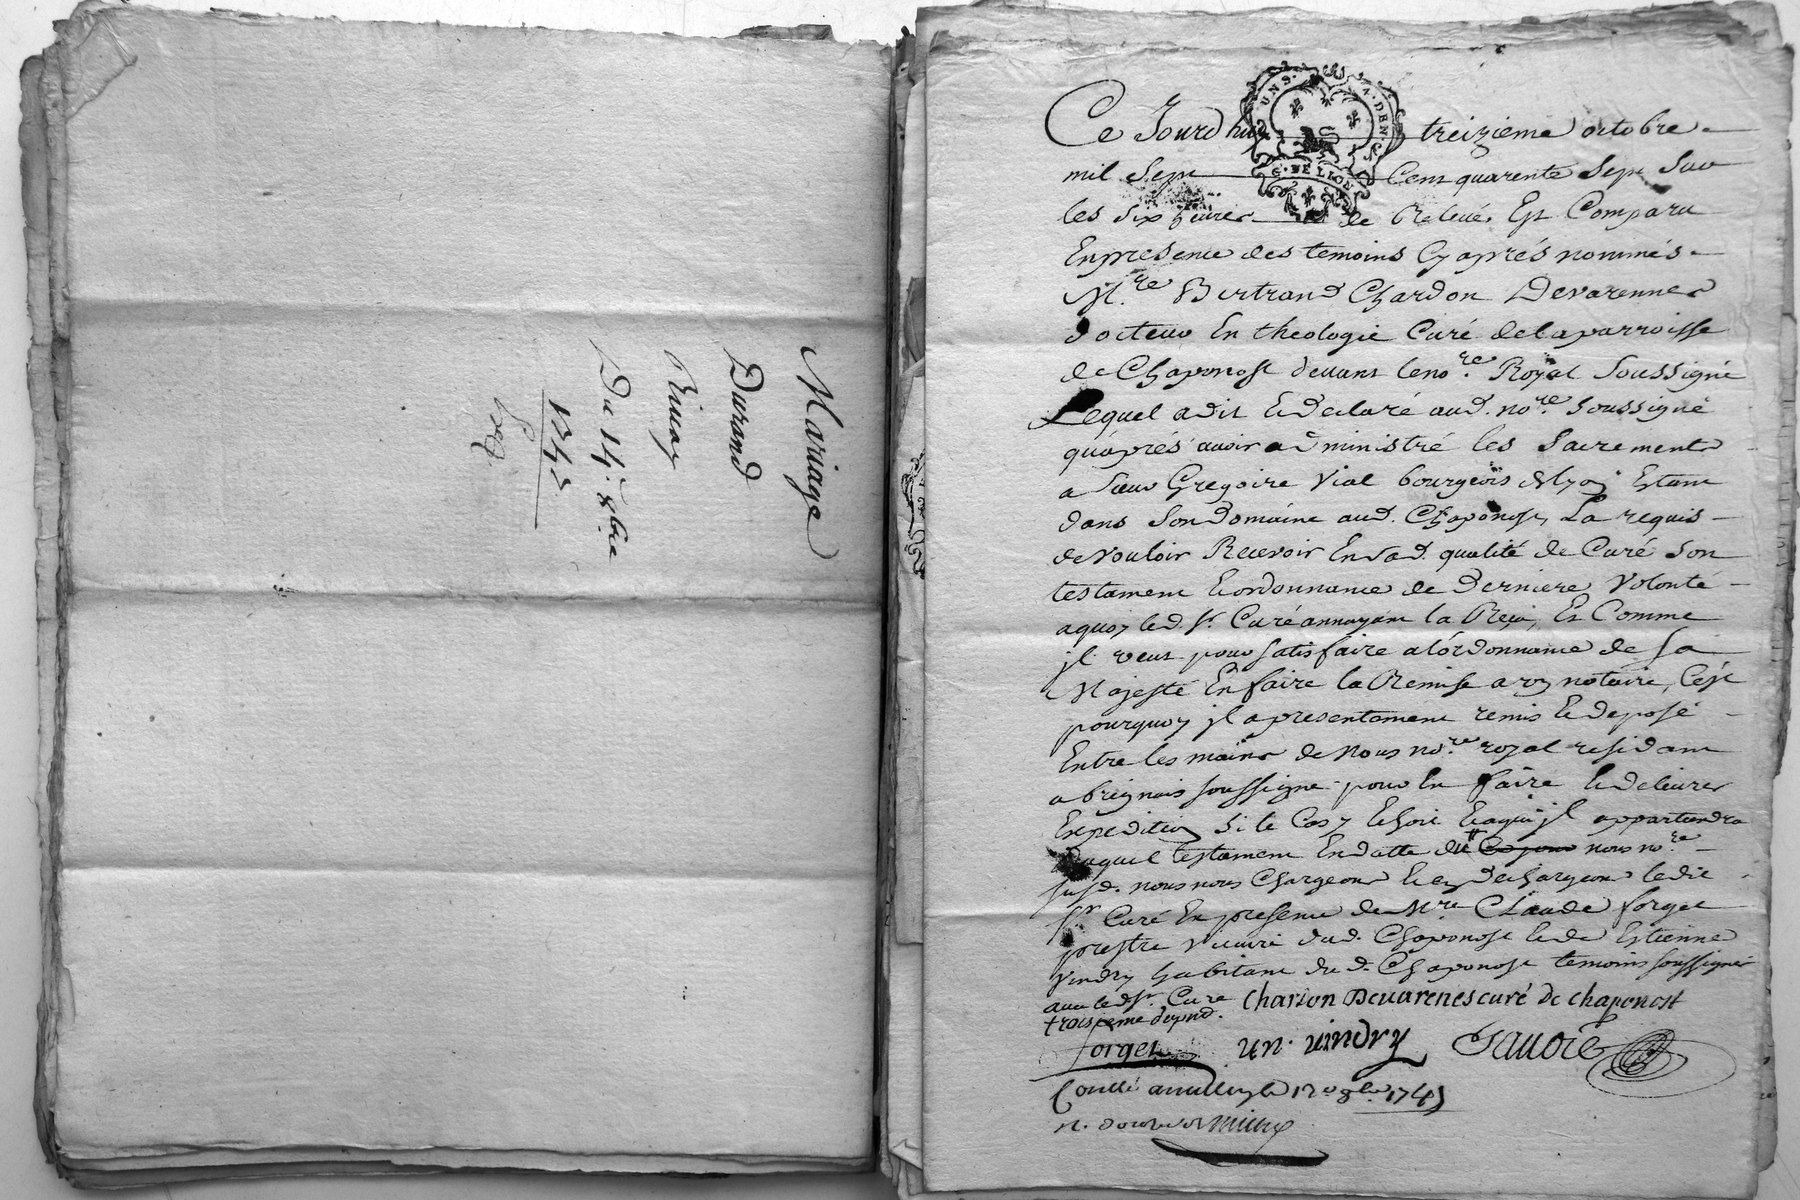 Mariage
Durand
Du 14.e 8bre
1745
Ce Jourdhuy treizieme octobre
UN S. 4. DEN.
G. DE LION
mil Sept Cent quarente Sept Sur
les Six heures de Relevée Est Comparu
En presence des temoins Cy aprés nommés
M.re Bertrand Chardon Devarennes
docteur En theologie Curé de la parroisse
de Chaponost devant le no.re Royal Soussigné
Lequel a dit Et declaré aud. no.re Soussigné
qu'aprés avoir administré les Sacrements
a Sieur Gregoire Vial bourgeois de lyon Estant
dans Son Domaine aud. Chaponost, La requis
de vouloir Recevoir En Sad. qualité de Curé Son
testament Et ordonnance de Derniere Volonté
a quoy led. Sr. Curé annuyant la Reçû, Et Comme
jl veut pour Satisfaire a l'ordonnance de Sa
Majesté En faire la Remise a un notaire, C'est
pourquoy jl a presentement remis Et deposé
Entre les mains de Nous no.re royal residant
a brignais Soussigné pour En faire Et delivrer
Expedition Si le Cas y Echoit Et a qui jl appartiendra
Duquel testament En datte du nous no.re
susd. nous nous Chargeons Et en dechargeons ledit
Sr Curé En presence de M.re Claude forget
prestre Vicaire dud. Chaponost Et de Estienne
Vindry habitant du d. Chaponost temoins Soussignés
avec led. Sr. Curé Chardon Devarenes curé de chaponost
troisieme
forget un. vindry Savoie
Controllé le 8bre 174